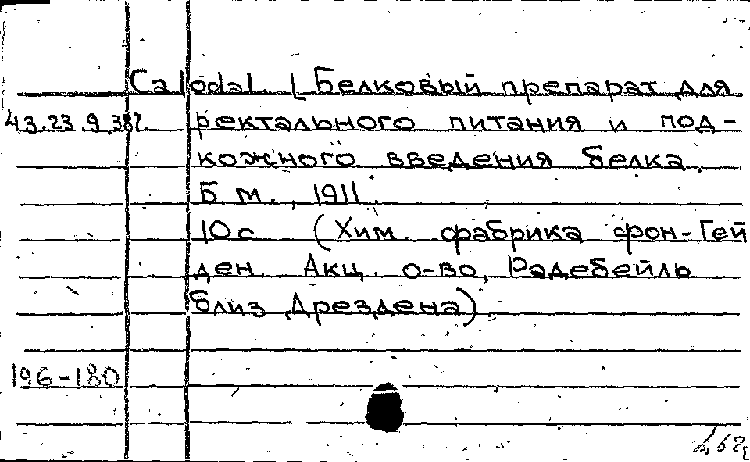 Calodal. [Белковый препарат для
43.23.9.387. ректального питания и под-
кожного введения белка.
Б.м., 1911.
10с. (Хим. фабрика фон-Гей
ден. Акц. о-во, Радебейль
близ Дрездена).
196-180